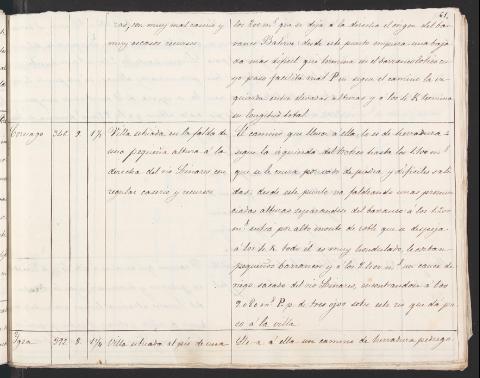 61.
zas, con muy mal caserío y
muy escasos recursos.
los 200 m.s que se deja á la derecha el origen del bar-
ranco desde este punto empieza una baja-
da mas dificil que termina en el barranco
yo paso facilita mal P. sigue el camino la iz-
quierda entre elevadas alturas y a los K. termina
su longitud total.
Cornago 9. 1½ Villa situada en la falda de
una pequeña altura á la
derecha del rio Linares con
regular caserío y recursos.
El camino que lleva á ella, lo es de herradura
sigue la izquierda del hasta los
que se cruza por vado de piedra, y dificiles sali-
das; desde este punto va faldeando unas pronun-
ciadas alturas separandose del barranco á los
m.s entra por alto monte de roble que se despeja
á los K. todo él es muy hondulado, le cortan
pequeños barrancos y á los m.s un cauce de
riego sacado del rio Linares, encontrandose á los
m.s P. p. de tres ojos sobre este rio que da pa-
so á la villa.
Ygea 592. 8. 1¼ Villa situada al pié de una
Lleva á ella un camino de herradura pedrego-